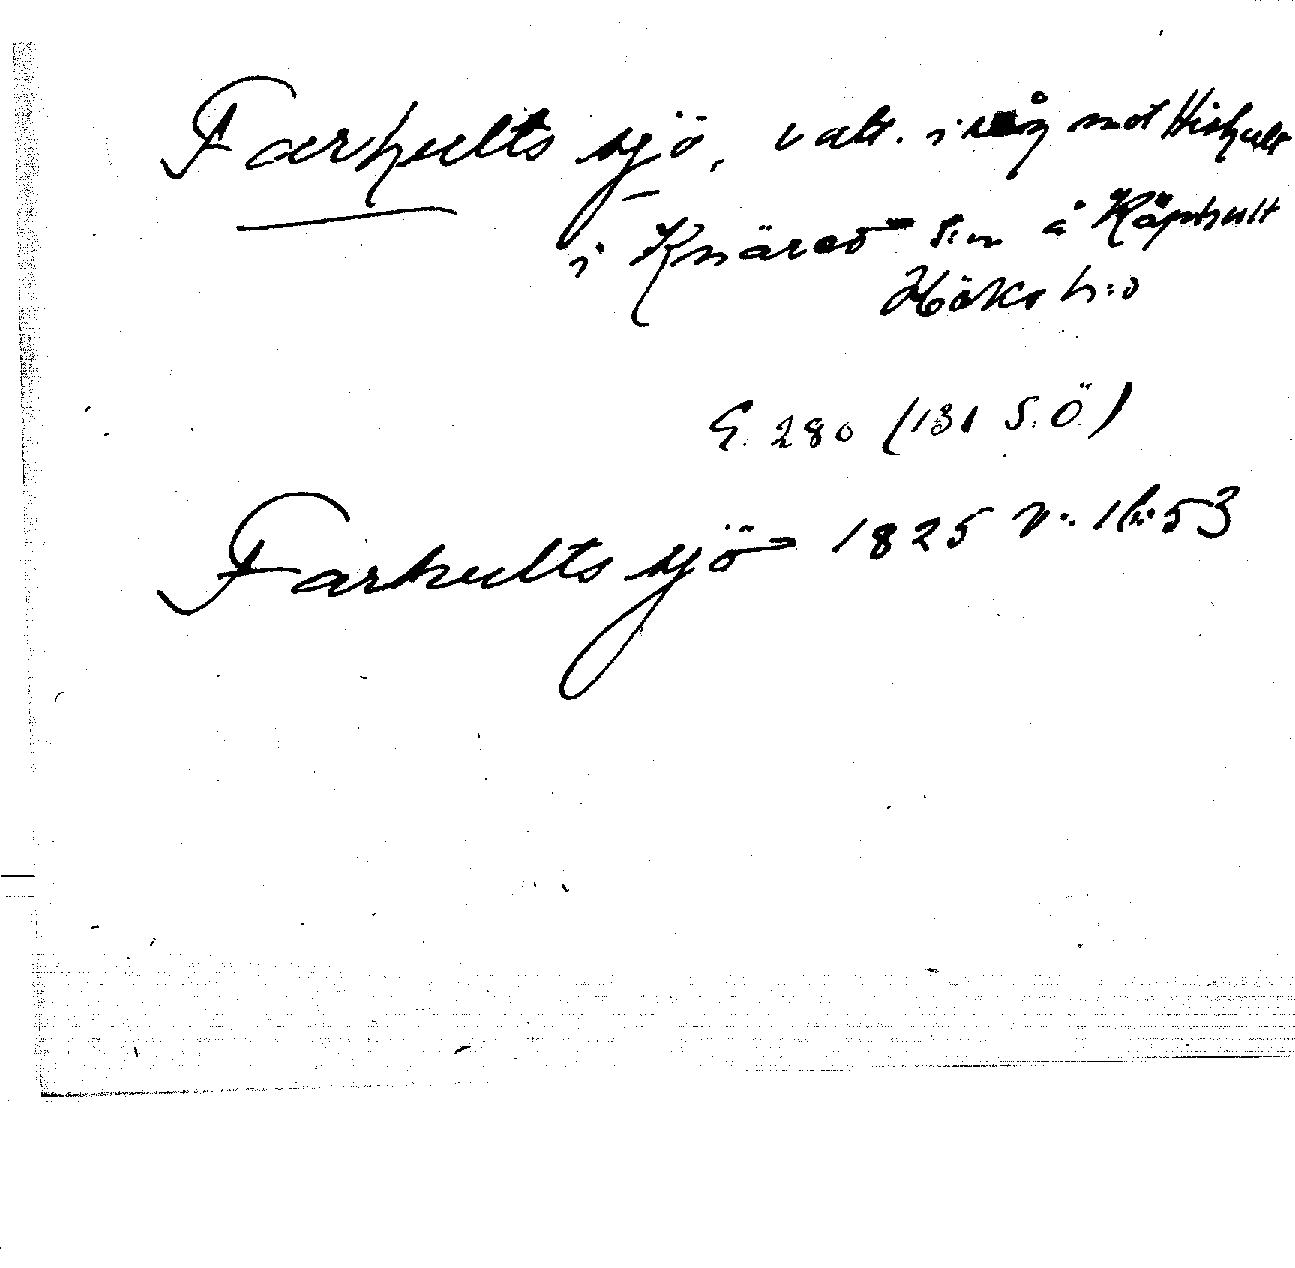 Farhults sjö, vatt. i råg mot Hishult
i Knäred s:n å Råphult
Höks h:d
G. 280 (131 S.Ö)
Farhults sjö 1825 v. 16:53